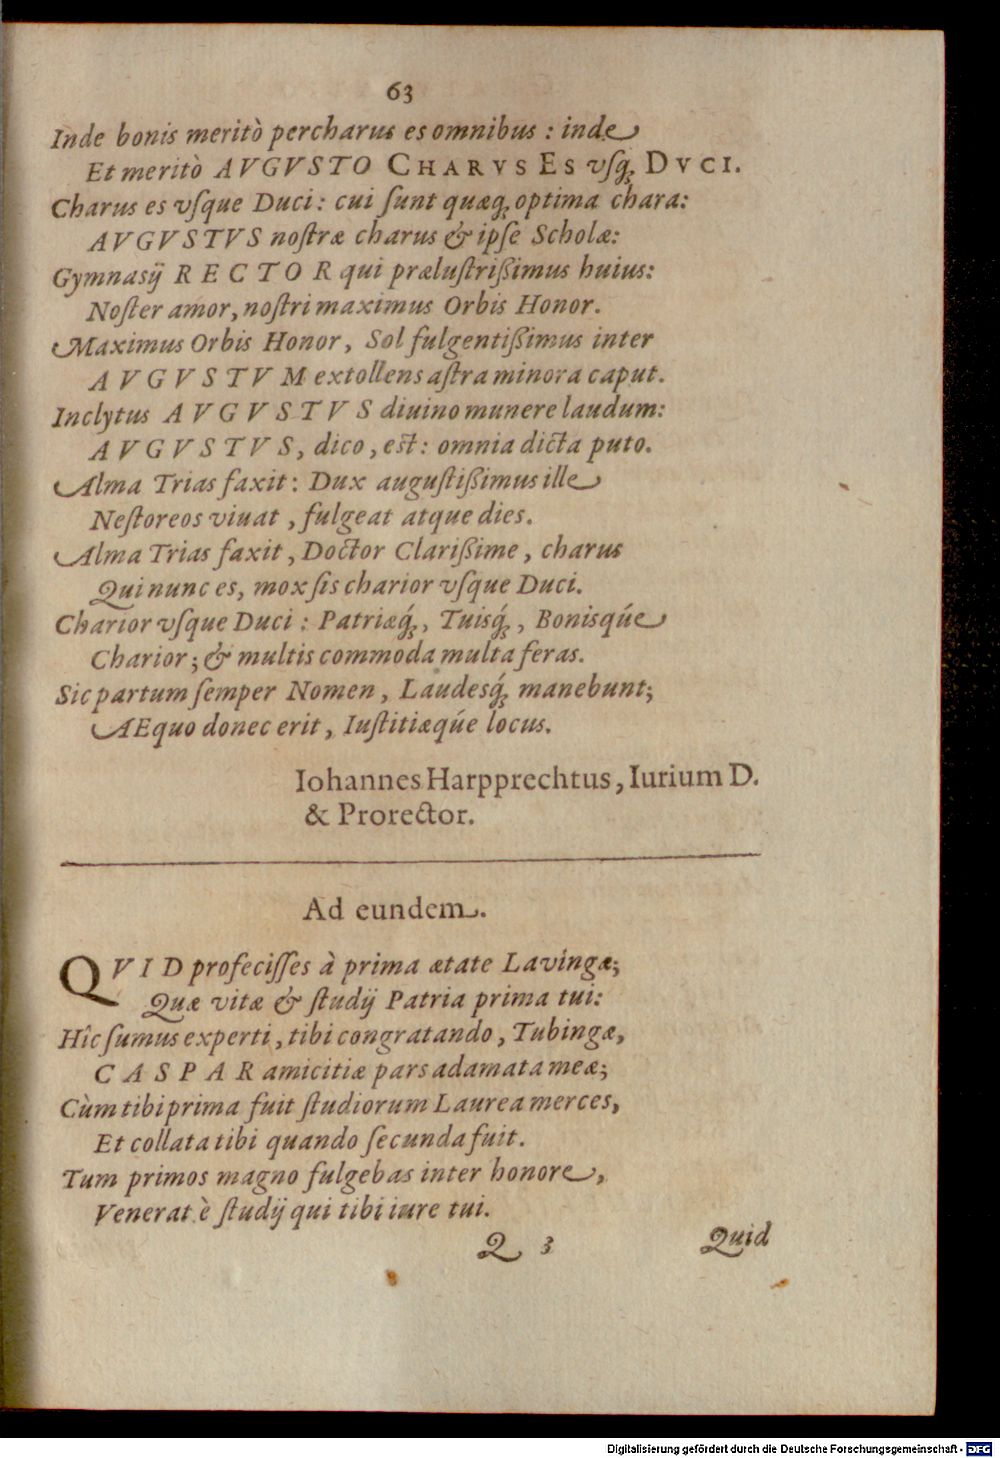 63
Inde bonis meritò percharus es omnibus : inde
Et meritò AVGVSTO CHARVS ES vſq́ꝫ DVCI.
Charus es vſque Duci: cui ſunt quæq́ꝫ optima chara:
AVGVSTVS noſtræ charus & ipſe Scholæ:
Gymnasij RECTOR qui præluſtrißimus huius:
Noſter amor, noſtri maximus Orbis Honor.
Maximus Orbis Honor, Sol fulgentißimus inter
AVGVSTVM extollens aſtra minora caput.
Inclytus AVGVSTVS diuino munere laudum:
AVGVSTVS, dico, est: omnia dicta puto.
Alma Trias faxit: Dux auguſtißimus ille
Neſtoreos viuat, fulgeat atque dies.
Alma Trias faxit, Doctor Clarißime, charus
Qui nunc es, mox ſis charior vſque Duci.
Charior vſque Duci: Patriæq́ꝫ, Tuisq́ꝫ, Bonisqúe
Charior; & multis commoda multa feras.
Sic partum ſemper Nomen, Laudesq́ꝫ manebunt;
AEquo donec erit, Iuſtitiæqúe locus.
Iohannes Harpprechtus, Iurium D.
& Prorector.
Ad eundem.
QVID profeciſſes à prima ætate Lavingæ;
Quæ vitæ & ſtudij Patria prima tui:
Hîc ſumus experti, tibi congratando, Tubingæ,
CASPAR amicitiæ pars adamata meæ;
Cùm tibi prima fuit ſtudiorum Laurea merces,
Et collata tibi quando ſecunda fuit.
Tum primos magno fulgebas inter honore,
Venerat è ſtudij qui tibi iure tui.
Q 3
Quid
Digitalisierung gefördert durch die Deutsche Forschungsgemeinschaft - DFG